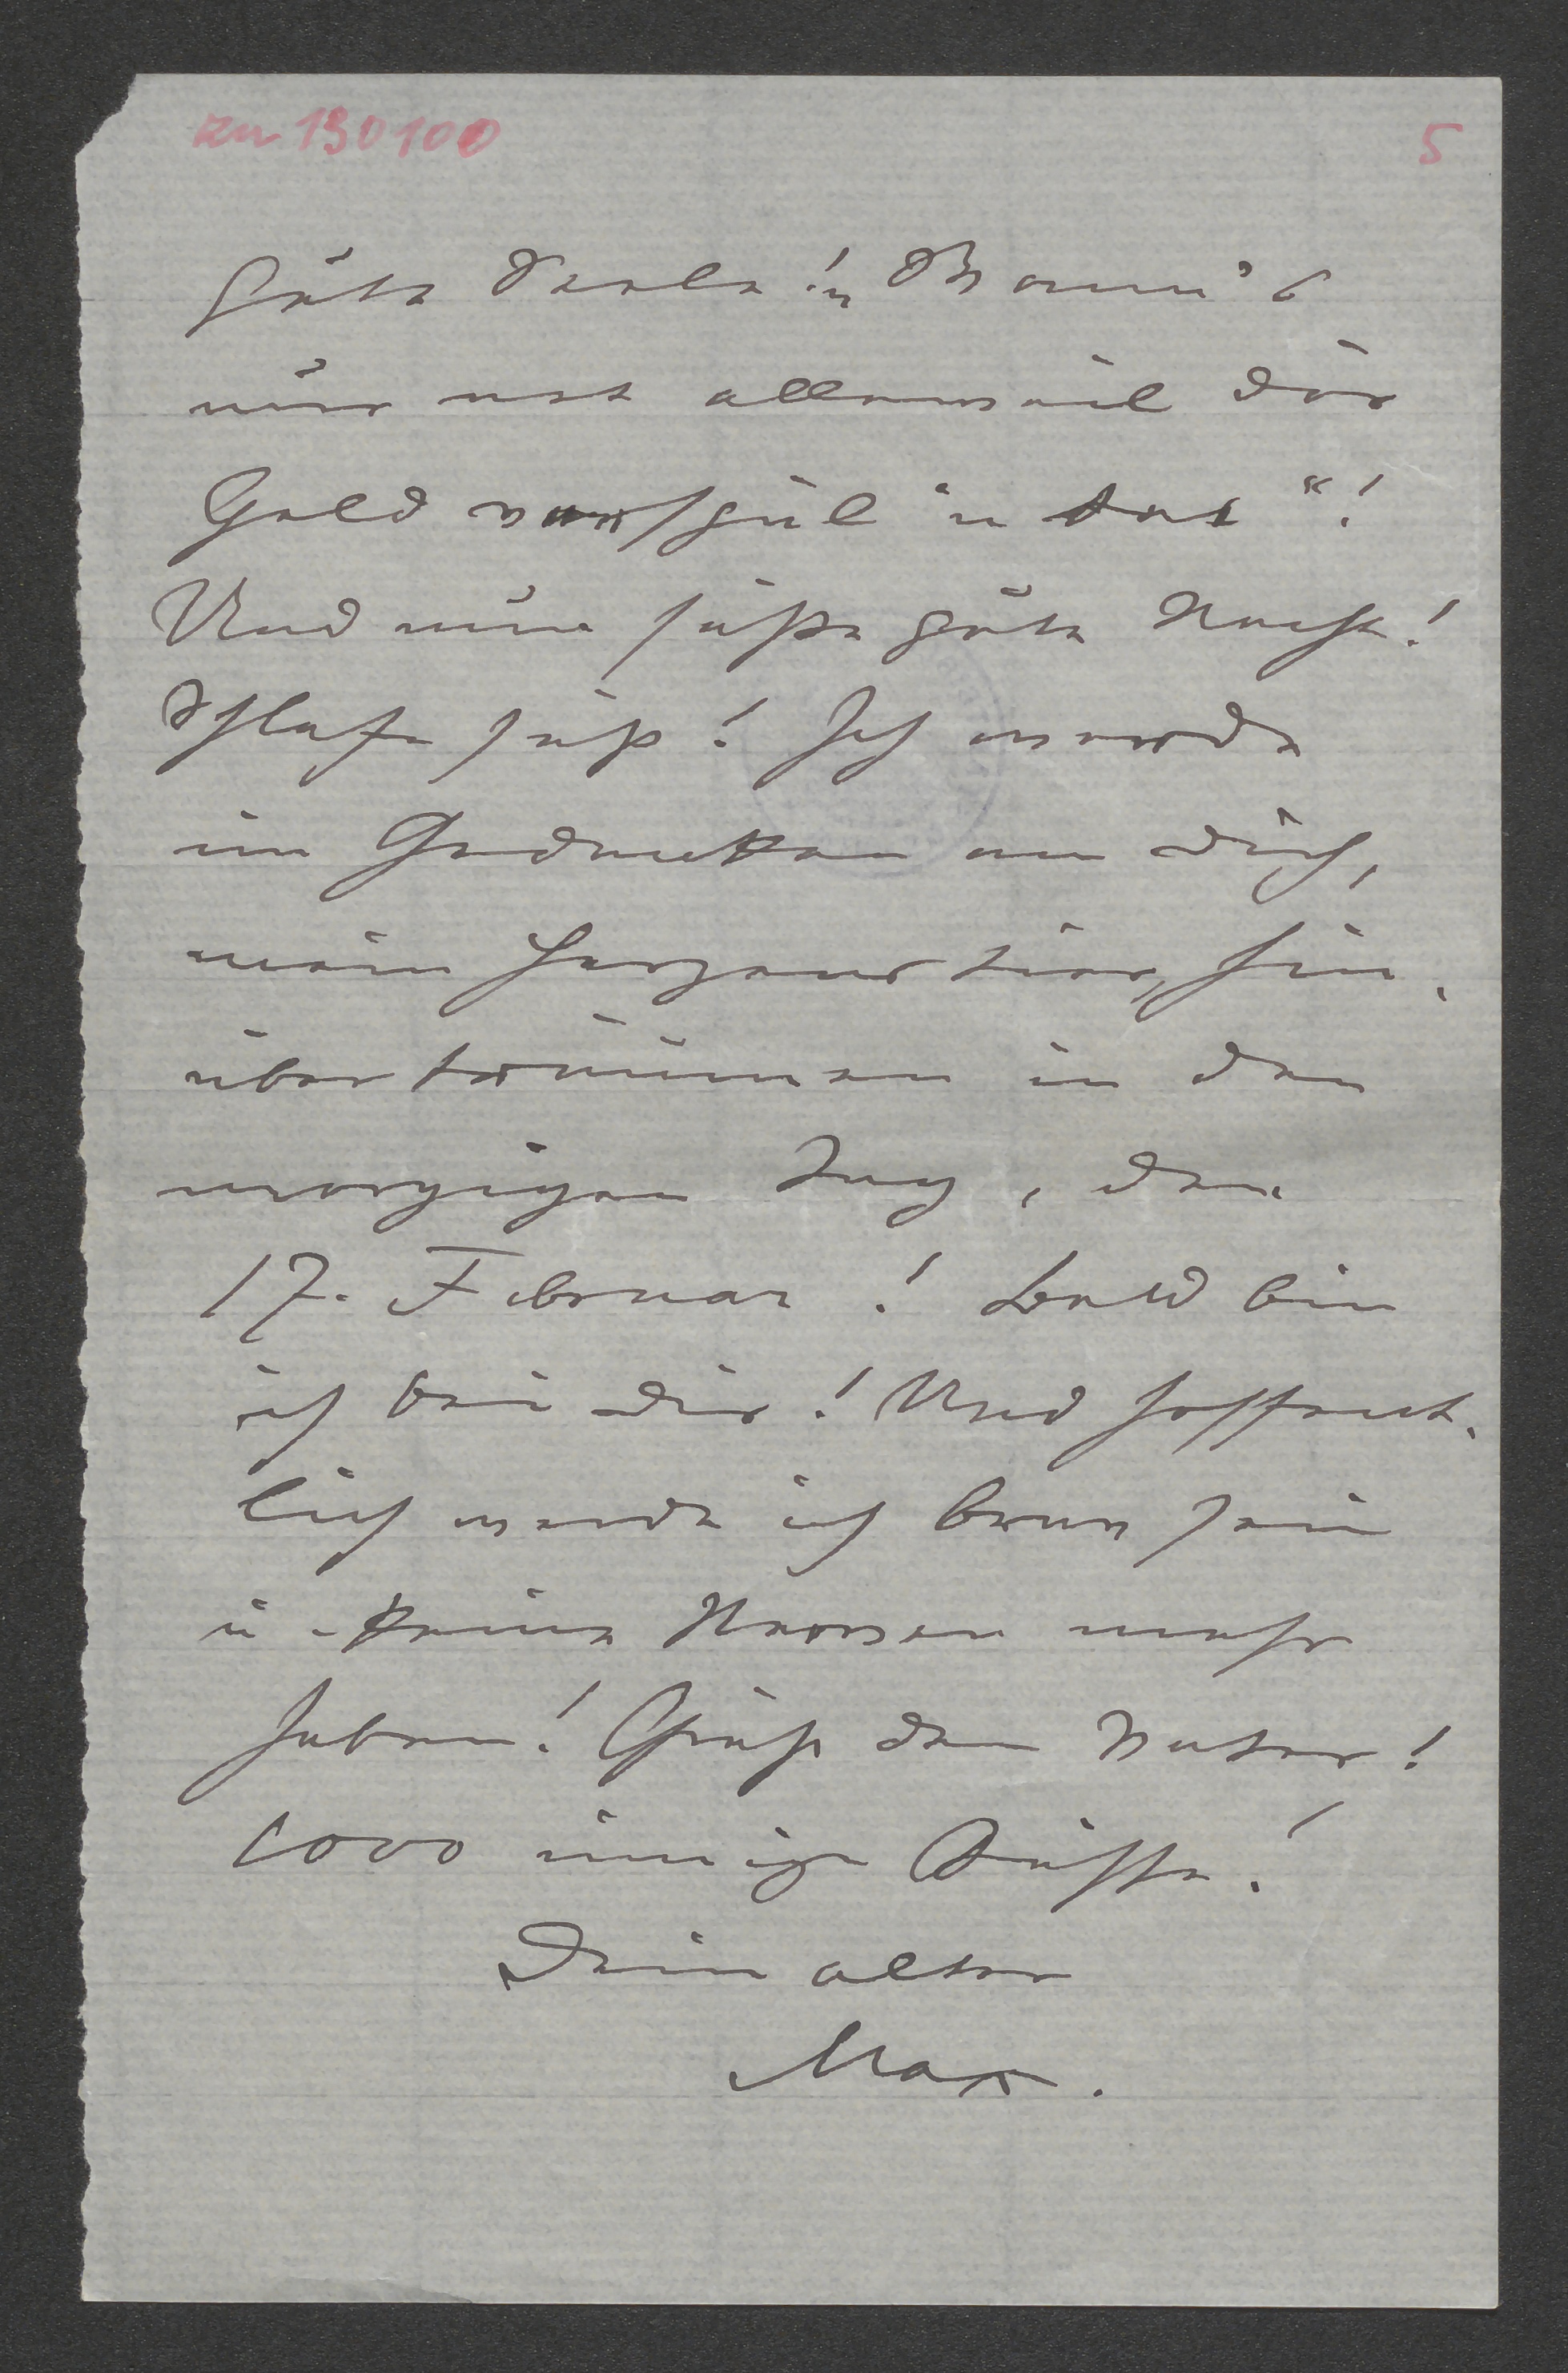 zu 130100
5
gute Seele! „Wann's
nur net alleweil dös
Geld verspül'n tat“!
Und nun süße gute Nacht!
Schlafe süß! Ich werde
im Gedenken an dich,
mein Herzenstier, hin-
überträumen in den
morgigen Tag, den
17. Februar! Bald bin
ich bei dir! Und hoffent-
lich werde ich brav sein
u. keine Nerven mehr
haben! Grüß den Vater!
1000 innige Küsse!
Dein alter
Max.